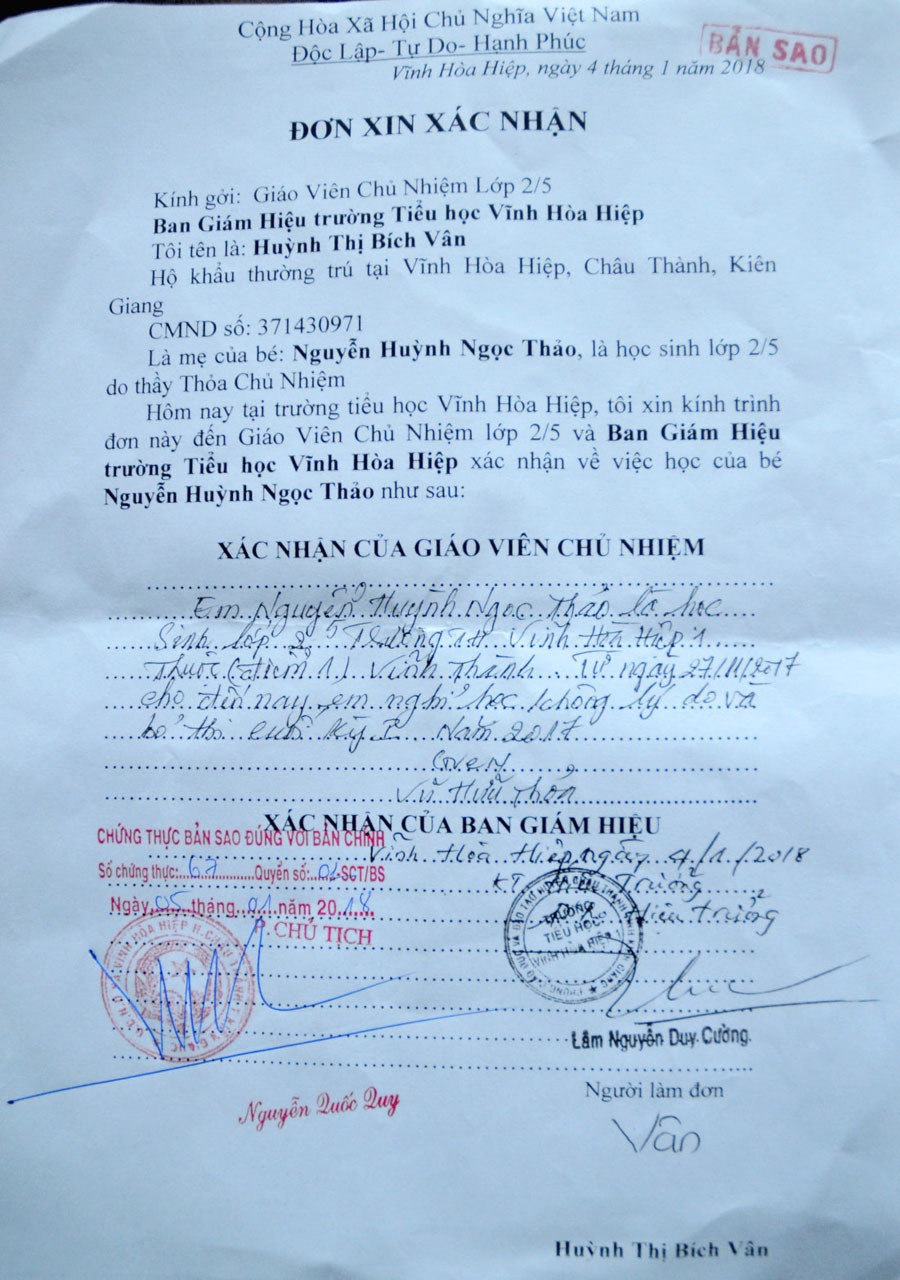 Cộng Hòa Xã Hội Chủ Nghĩa Việt Nam
Độc Lập- Tự Do- Hạnh Phúc
BẢN SAO
Vĩnh Hòa Hiệp, ngày 4 tháng 1 năm 2018
ĐƠN XIN XÁC NHẬN
Kính gởi: Giáo Viên Chủ Nhiệm Lớp 2/5
Ban Giám Hiệu trường Tiểu học Vĩnh Hòa Hiệp
Tôi tên là: Huỳnh Thị Bích Vân
Hộ khẩu thường trú tại Vĩnh Hòa Hiệp, Châu Thành, Kiên
Giang
CMND số: 371430971
Là mẹ của bé: Nguyễn Huỳnh Ngọc Thảo, là học sinh lớp 2/5
do thầy Thỏa Chủ Nhiệm
Hôm nay tại trường tiểu học Vĩnh Hòa Hiệp, tôi xin kính trình
đơn này đến Giáo Viên Chủ Nhiệm lớp 2/5 và Ban Giám Hiệu
trường Tiểu học Vĩnh Hòa Hiệp xác nhận về việc học của bé
Nguyễn Huỳnh Ngọc Thảo như sau:
XÁC NHẬN CỦA GIÁO VIÊN CHỦ NHIỆM
Em Nguyễn Huỳnh Ngọc Thảo là học
Sinh lớp 2/5 Trường TH Vĩnh Hòa Hiệp 1
Thuộc (điểm 1) Vĩnh Thành. Từ ngày 27/11/2017
cho đến nay em nghỉ học không lý do và
bỏ thi cuối kỳ I Năm 2017
GVCN
Vũ Hữu Thỏa
XÁC NHẬN CỦA BAN GIÁM HIỆU
Vĩnh Hòa Hiệp, ngày 4/1/2018
KT Hiệu Trưởng
Phó Hiệu trưởng
TRƯỜNG
TIỂU HỌC
VĨNH HÒA HIỆP 1
Lâm Nguyễn Duy Cường
CHỨNG THỰC BẢN SAO ĐÚNG VỚI BẢN CHÍNH
Số chứng thực: 67 Quyển số: 01-SCT/BS
Ngày 05 tháng 01 năm 2018
P. CHỦ TỊCH
Nguyễn Quốc Quy
Người làm đơn
Vân
Huỳnh Thị Bích Vân